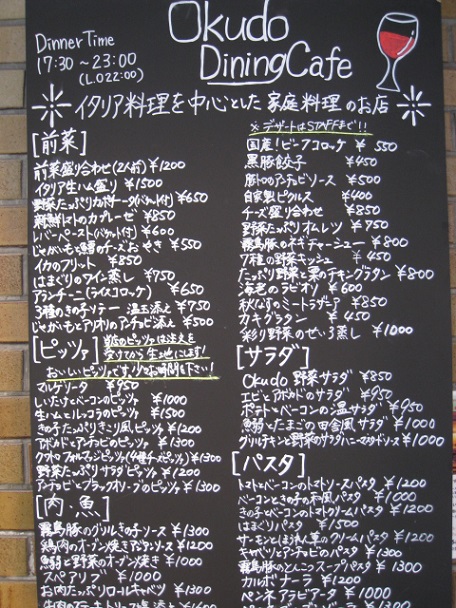 Okudo
DiningCafe
DinnerTime
17:30~23:00
(L.O22:00)
イタリア料理を中心とした家庭料理のお店
[前菜]
前菜盛り合わせ(2人前) ¥1200
イタリア生ハム盛り ¥1500
野菜たっぷりカポナータ(バケット付) ¥650
朝鮮トマトのカプレーゼ ¥850
レバーペースト(バケット付) ¥600
じゃがいもと鱈のチーズおやき ¥550
イカのフリット ¥850
はまぐりのワイン蒸し ¥750
アランチーニ(ライスコロッケ) ¥650
3種のきのこソテー 温玉添え ¥750
じゃがいもとアサリのアンチョビ添え ¥500
[ピッツァ]
当店のピッツァは注文を
受けてから生地にします!
おいしいピッツァです。少々お時間を下さい!
マルゲリータ ¥950
しいたけとベーコンのピッツァ ¥1000
生ハムとルッコラのピッツァ ¥1500
きのこたっぷりきこり風ピッツァ ¥1200
アボカドとアンチョビのピッツァ ¥1300
クアトロフォルマッジピッツァ(4種チーズピッツァ) ¥1300
野菜たっぷりサラダピッツァ ¥1200
アンチョビとブラックオリーブのピッツァ ¥1200
[肉・魚]
霧島豚のグリルきのこソース ¥1300
鶏肉のオーブン焼き ¥1200
魚翁と野菜のオーブン焼き ¥1000
スペアリブ ¥1000
お肉たっぷりロールキャベツ ¥1300
※デザートはSTAFFまで!!
国産!ビーフコロッケ ¥550
黒豚餃子 ¥450
豚トロのアンチョビソース ¥500
自家製ピクルス ¥400
チーズ盛り合わせ ¥850
野菜たっぷりオムレツ ¥750
霧島豚のネギチャーシュー ¥800
7種の野菜キッシュ ¥450
たっぷり野菜と栗のチキングラタン ¥800
海老のラビオリ ¥600
秋なすのミートラザーニア ¥850
カキグラタン ¥450
彩り野菜のせいろ蒸し ¥1000
[サラダ]
Okudo 野菜サラダ ¥850
エビとアボカドのサラダ ¥950
ポテトとベーコンの温サラダ ¥950
魚翁とたまごの田舎風サラダ ¥1000
グリルチキンと野菜のサラダハニーマスタードソース ¥1000
[パスタ]
トマトとベーコンのトマトソースパスタ ¥1200
ベーコンときのこの和風パスタ ¥1000
きのことベーコンのトマトクリームパスタ ¥1200
はまぐりパスタ ¥1500
サーモンとほうれん草のクリームパスタ ¥1200
キャベツとアンチョビのパスタ ¥1300
霧島豚のとんこつスープパスタ ¥1300
カルボナーラ ¥1200
ペンネアラビアータ ¥1000